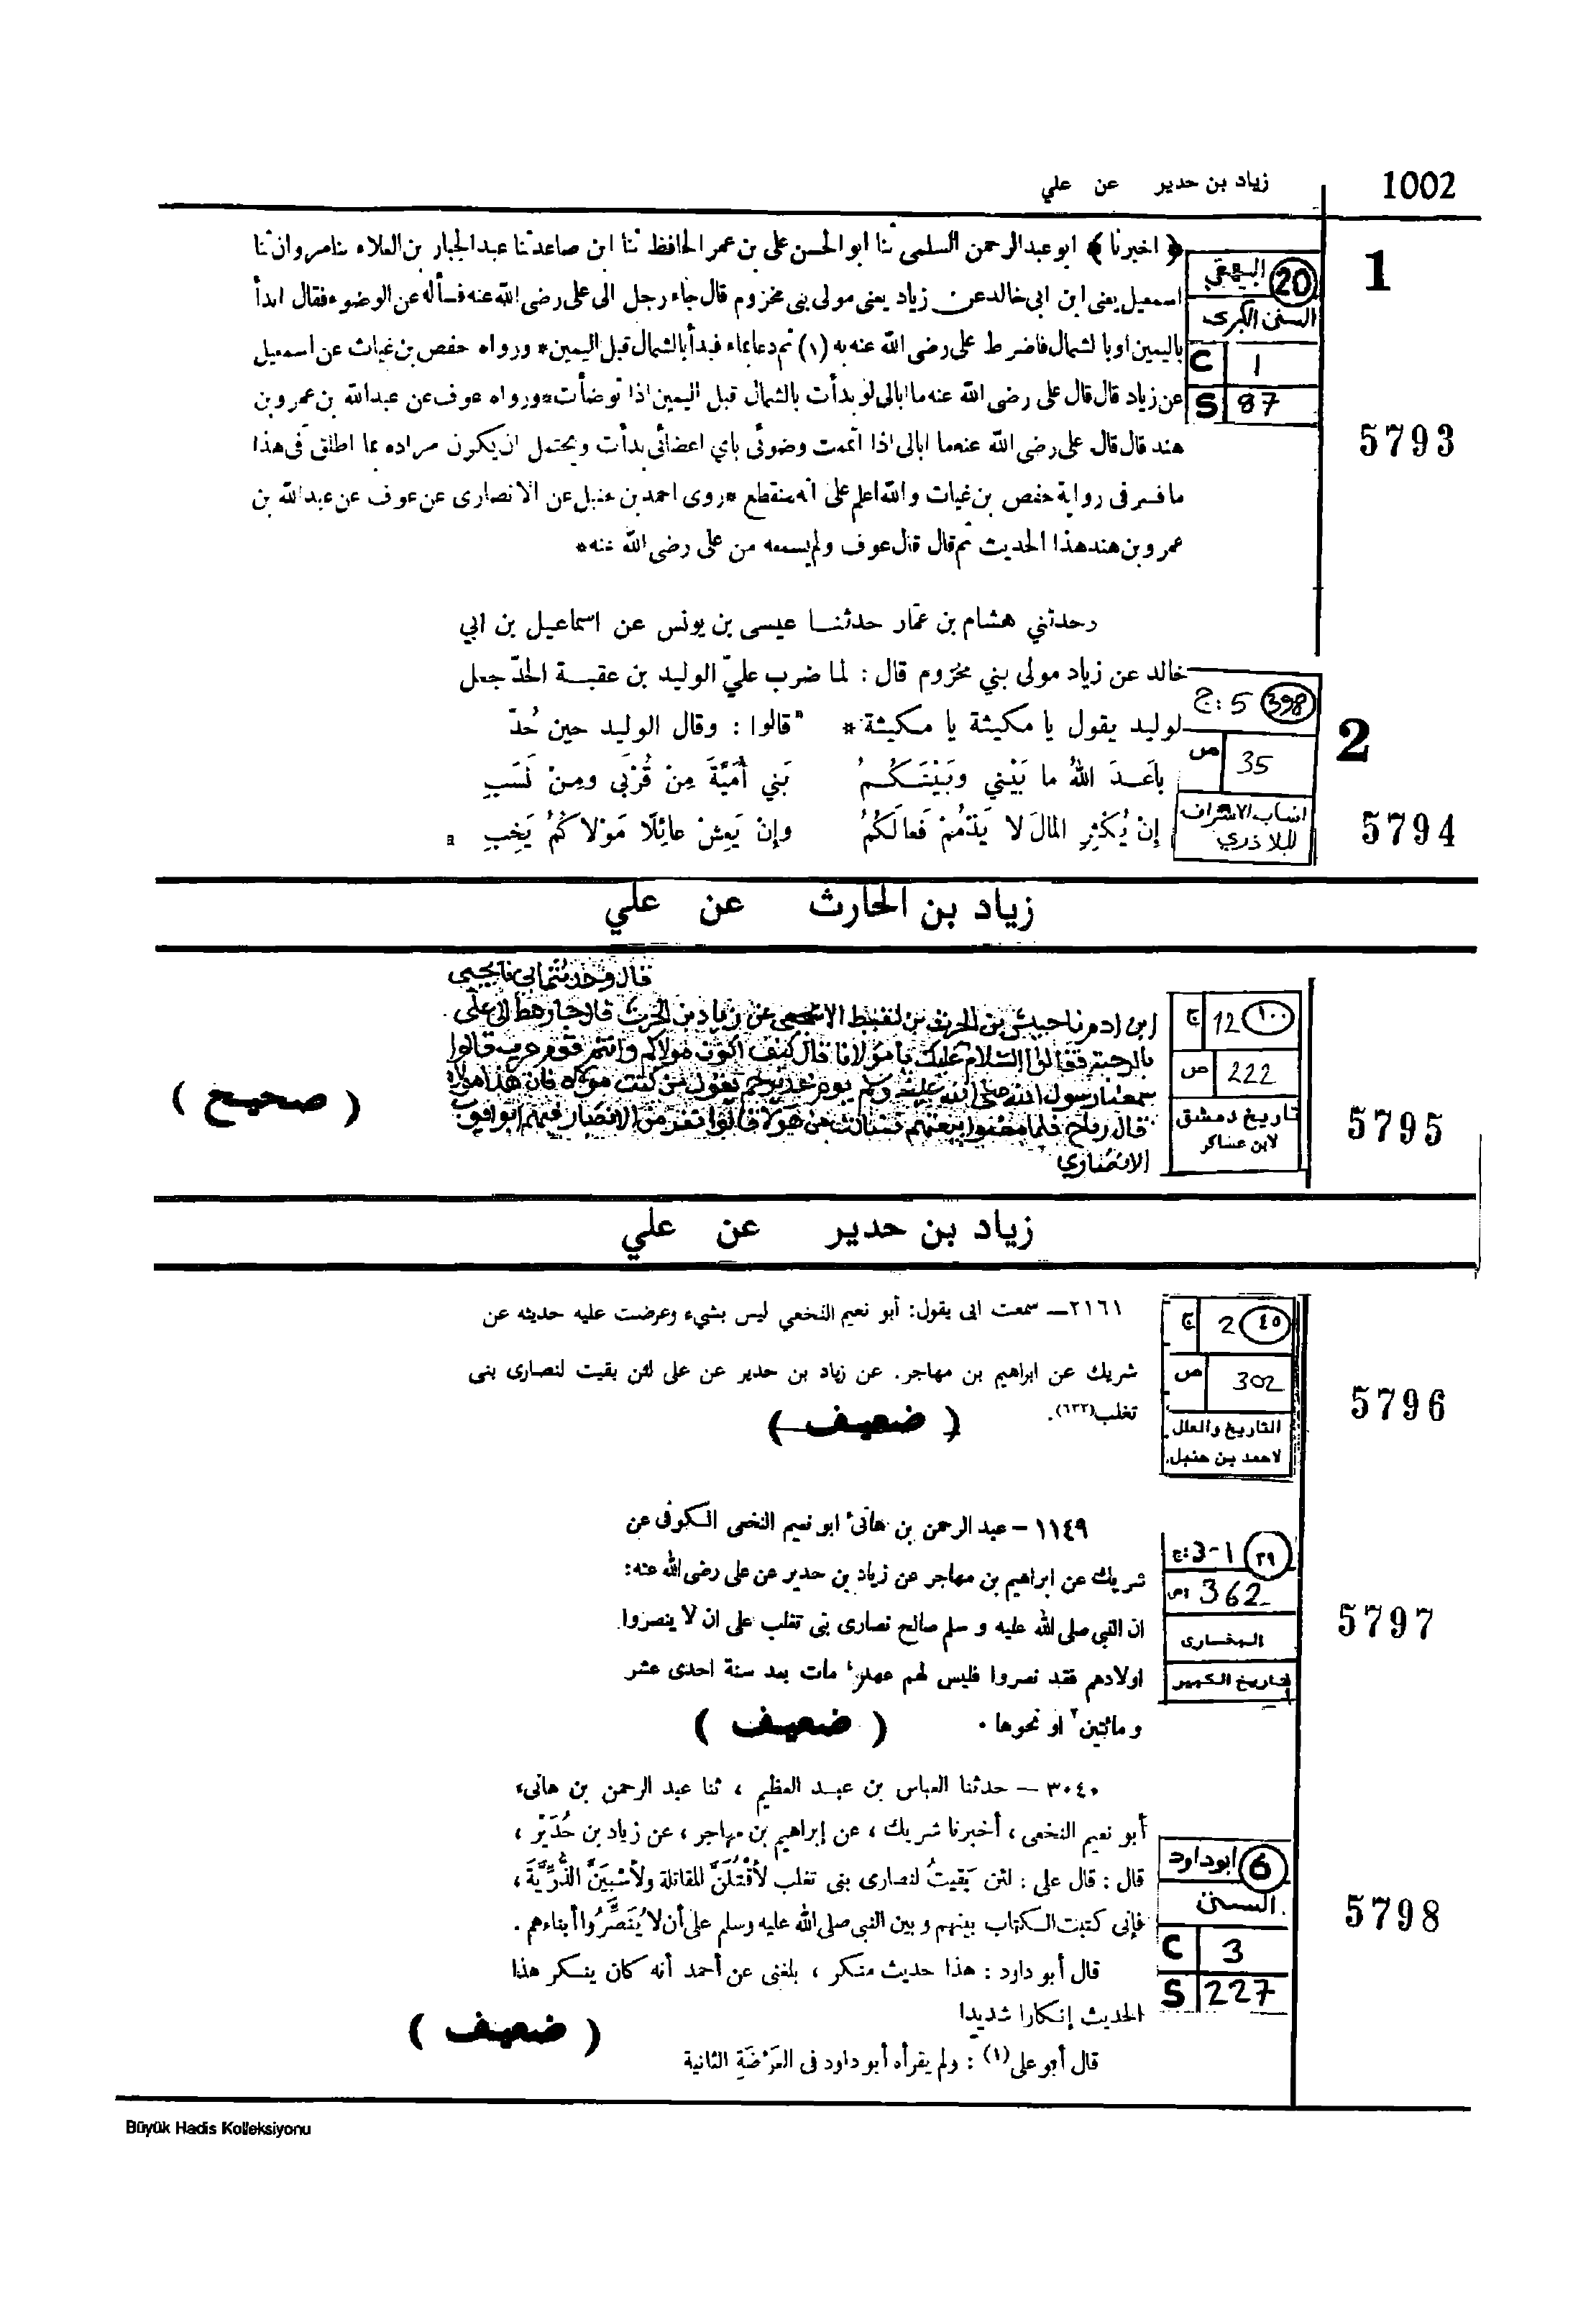 زياد بن حدير عن علي 1002
﴿ اخبرنا ﴾ ابو عبد الرحمن السلمى ثنا ابو الحسن على بن عمر الحافظ ثنا ابن صاعد ثنا عبد الجبار بن العلاء ثنا مروان ثنا
اسمعيل يعنى ابن ابى خالد عن زياد يعنى مولى بنى مخزوم قال جاء رجل الى على رضى الله عنه فسأله عن الوضوء فقال ابدأ
باليمين او بالشمال فاضرط على رضى الله عنه به (١) ثم دعا بماء فبدأ بالشمال قبل اليمين * ورواه حفص بن غياث عن اسمعيل
عن زياد قال قال على رضى الله عنه ما ابالى لو بدأت بالشمال قبل اليمين اذا توضأت * ورواه عوف عن عبدالله بن عمرو بن
هند قال قال على رضى الله عنه ما ابالى اذا اتممت وضوئى باي اعضائى بدأت ويحتمل ان يكون مراده بما اطلق فى هذا
ما فسر فى رواية حفص بن غياث والله اعلم على انه منقطع * روى احمد بن حنبل عن الانصارى عن عوف عن عبد الله بن
عمرو بن هند هذا الحديث ثم قال قال عوف ولم يسمعه من على رضى الله عنه *
20 البيهقي
السنن الكبرى
C 1
S 87
1
5793
وحدثني هشام بن عمّار حدثنـا عيسى بن يونس عن اسماعيل بن ابي
خالد عن زياد مولى بني مخزوم قال : لما ضرب عليّ الوليد بن عقبـة الحدّ جعل
لوليد يقول يا مكيثة يا مكيثة * قالوا : وقال الوليد حين حُدّ
باعَـدَ اللهُ ما بَيْني وبَيْنَـكُـمُ بَني أُمَيَّةَ مِنْ قُرْبَى ومِنْ نَسَبِ
إنْ يُكْثِرِ المالَ لا يَذْمُمْ فَعالَكُمُ وإنْ يَعِشْ عائِلًا مَوْلاكُمُ يَخِبِ
398 5 :ج
ص 35
انساب الاشراف
للبلاذري
2
5794
زياد بن الحارث عن علي
قال وحدثتما ابى نا يحيى
ابن ادم نا حبيش بن الحرث بن لقيط الاشجعى عن زياد بن الحرث قال جا رهط الى على
بالرحبة فقالوا السلام عليك يا مولانا قال كيف اكون مولاكم وانتم قوم عرب قالوا
سمعنا رسول الله صلى الله عليه وسلم يوم غدير خم يقول من كنت مولاه فان هذا مولاه
قال رباح فلما مضوا تبعتهم فسالت من هولا قالوا نفر من الانصار فيهم ابو ايوب
الانصاري
( صحيح )
١٠٠ 12 ج
222 ص
تاريخ دمشق
لابن عساكر
5795
زياد بن حدير عن علي
٢١٦١ــ سمعت ابى يقول: أبو نعيم النخعي ليس بشيء وعرضت عليه حديثه عن
شريك عن ابراهيم بن مهاجر. عن زياد بن حدير عن على لئن بقيت لنصارى بنى
تغلب(٦٣٣).
( ضعيف )
٤٥ 2 ج
302 ص
التاريخ والعلل
لاحمد بن حنبل.
5796
١١٤٩ – عبد الرحمن بن هانى ابو نعيم النخعى الـكوفى عن
شريك عن ابراهيم بن مهاجر عن زياد بن حدير عن على رضى الله عنه:
ان النبى صلى الله عليه و سلم صالح نصارى بنى تغلب على ان لا ينصروا
اولادهم فقد نصروا فليس لهم عهد، مات بعد سنة احدى عشر
و مائتين٢ او نحوها .
( ضعيف )
٣٩ 1-3 :ج
362 ص
البخارى
تاريخ الكبير
5797
٣٠٤٠ – حدثنا العباس بن عبـد العظيم ، ثنا عبد الرحمن بن هانىء
أبو نعيم النخعى ، أخبرنا شريك ، عن إبراهيم بن مهاجر ، عن زياد بن حُدَيْرٍ ،
قال : قال على : لئن بَقِيتُ لنصارى بنى تغلب لأقْتُلَنَّ المقاتلة ولأسْبِيَنَّ الذُّرِّيَّةَ ،
فإنى كتبت الـكتاب بينهم وبين النبى صلى الله عليه وسلم على أن لا يُنَصِّرُوا أبناءهم .
قال أبو داود : هذا حديث منكر ، بلغنى عن أحمد أنه كان ينـكر هذا
الحديث إنكارا شديدا
قال أبو على (١) : ولم يقرأه أبو داود فى العَرْضَةِ الثانية
( ضعيف )
6 ابوداود
السنن
C 3
S 227
5798
Büyük Hadis Kolleksiyonu